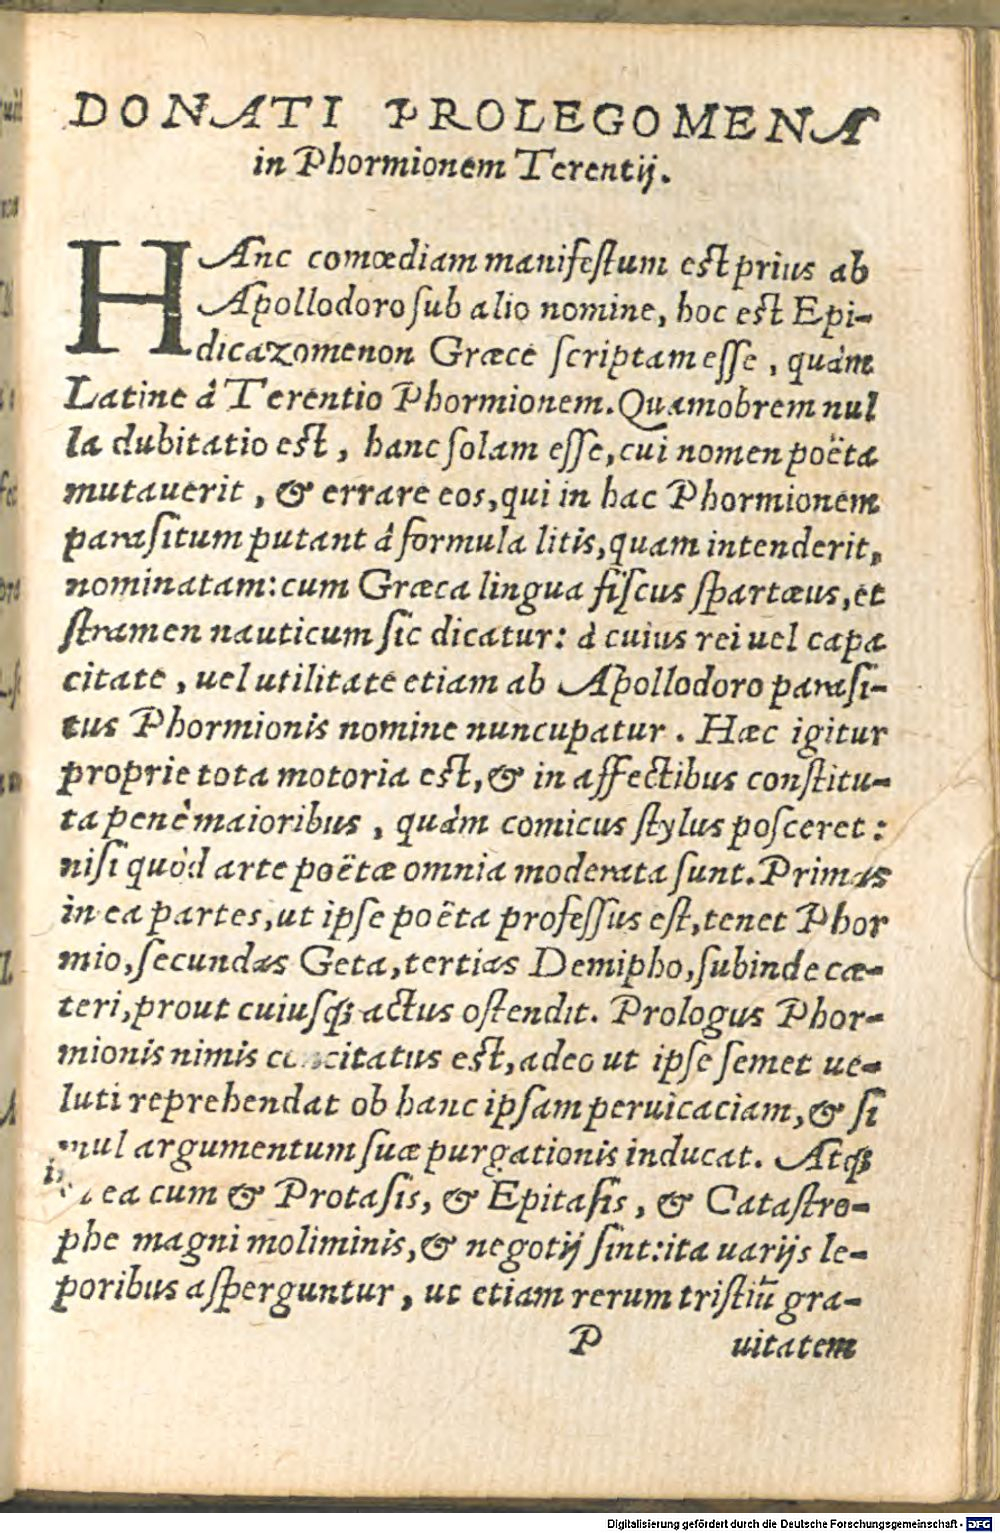 DONATI PROLEGOMENA
in Phormionem Terentij.
HAnc comœdiam manifestum est prius ab
Apollodoro sub alio nomine, hoc est Epi-
dicazomenon Græce scriptam esse, quàm
Latine à Terentio Phormionem. Quamobrem nul
la dubitatio est, hanc solam esse, cui nomen poëta
mutauerit, & errare eos, qui in hac Phormionem
parasitum putant à formula litis, quam intenderit,
nominatam: cum Græca lingua fiscus spartæus, et
stramen nauticum sic dicatur: à cuius rei uel capa
citate, uel utilitate etiam ab Apollodoro parasi-
tus Phormionis nomine nuncupatur. Hæc igitur
proprie tota motoria est, & in affectibus constitu-
ta penè maioribus, quàm comicus stylus posceret:
nisi quòd arte poëtæ omnia moderata sunt. Primas
in ea partes, ut ipse poëta professus est, tenet Phor
mio, secundas Geta, tertias Demipho, subinde cæ-
teri, prout cuiusq; actus ostendit. Prologus Phor-
mionis nimis concitatus est, adeo ut ipse semet ue-
luti reprehendat ob hanc ipsam peruicaciam, & si
mul argumentum suæ purgationis inducat. Atq;
in ea cum & Protasis, & Epitasis, & Catastro-
phe magni moliminis, & negotij sint: ita uarijs le-
poribus asperguntur, ut etiam rerum tristiū gra-
P uitatem
Digitalisierung gefördert durch die Deutsche Forschungsgemeinschaft - DFG